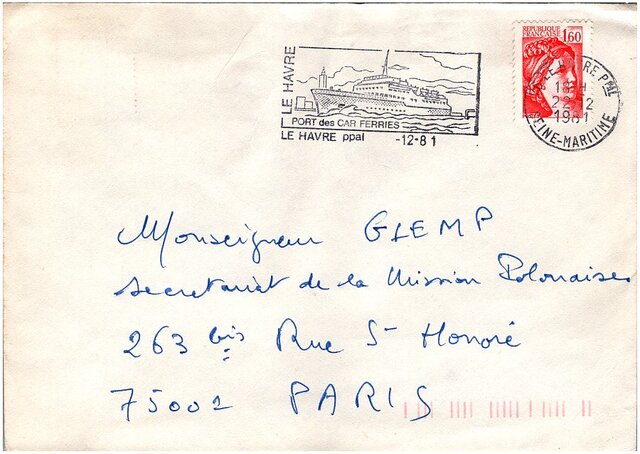 REPUBLIQUE
FRANÇAISE 1,60
LE HAVRE
PORT des CAR FERRIES
LE HAVRE ppal -12-81
LE HAVRE PPAL
18H
22-12
1981
SEINE-MARITIME
Monseigneur GLEMP
secretariat de la Mission Polonaise
263 bis Rue St Honoré
75001 PARIS